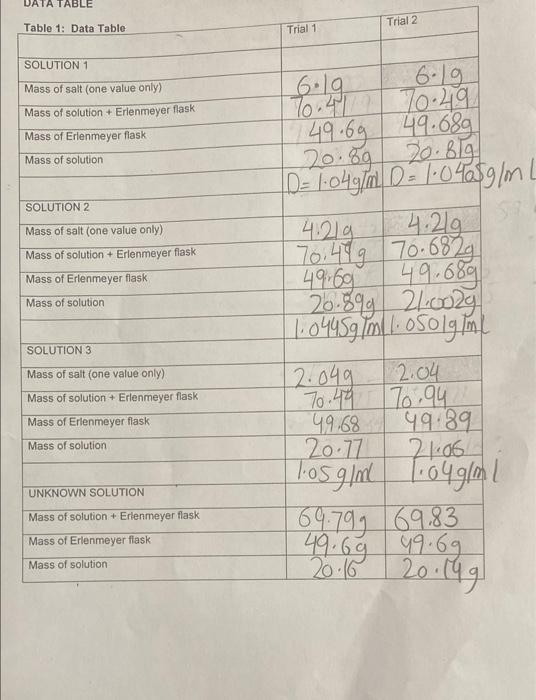 DATA TABLE
Table 1: Data Table Trial 1 Trial 2
SOLUTION 1
Mass of salt (one value only) 6.19 6.19
Mass of solution + Erlenmeyer flask 70.41 70.49
Mass of Erlenmeyer flask 49.6g 49.68g
Mass of solution 20.8g 20.81g
D= 1.04g/ml D= 1.0405g/ml
SOLUTION 2
Mass of salt (one value only) 4.21g 4.21g
Mass of solution + Erlenmeyer flask 70.49g 70.682g
Mass of Erlenmeyer flask 49.6g 49.68g
Mass of solution 20.89g 21.002g
1.0445g/ml 1.0501g/ml
SOLUTION 3
Mass of salt (one value only) 2.04g 2.04
Mass of solution + Erlenmeyer flask 70.44 70.94
Mass of Erlenmeyer flask 49.68 49.89
Mass of solution 20.77 21.06
1.05g/ml 1.04g/ml
UNKNOWN SOLUTION
Mass of solution + Erlenmeyer flask 69.79g 69.83
Mass of Erlenmeyer flask 49.6g 49.6g
Mass of solution 20.16 20.14g